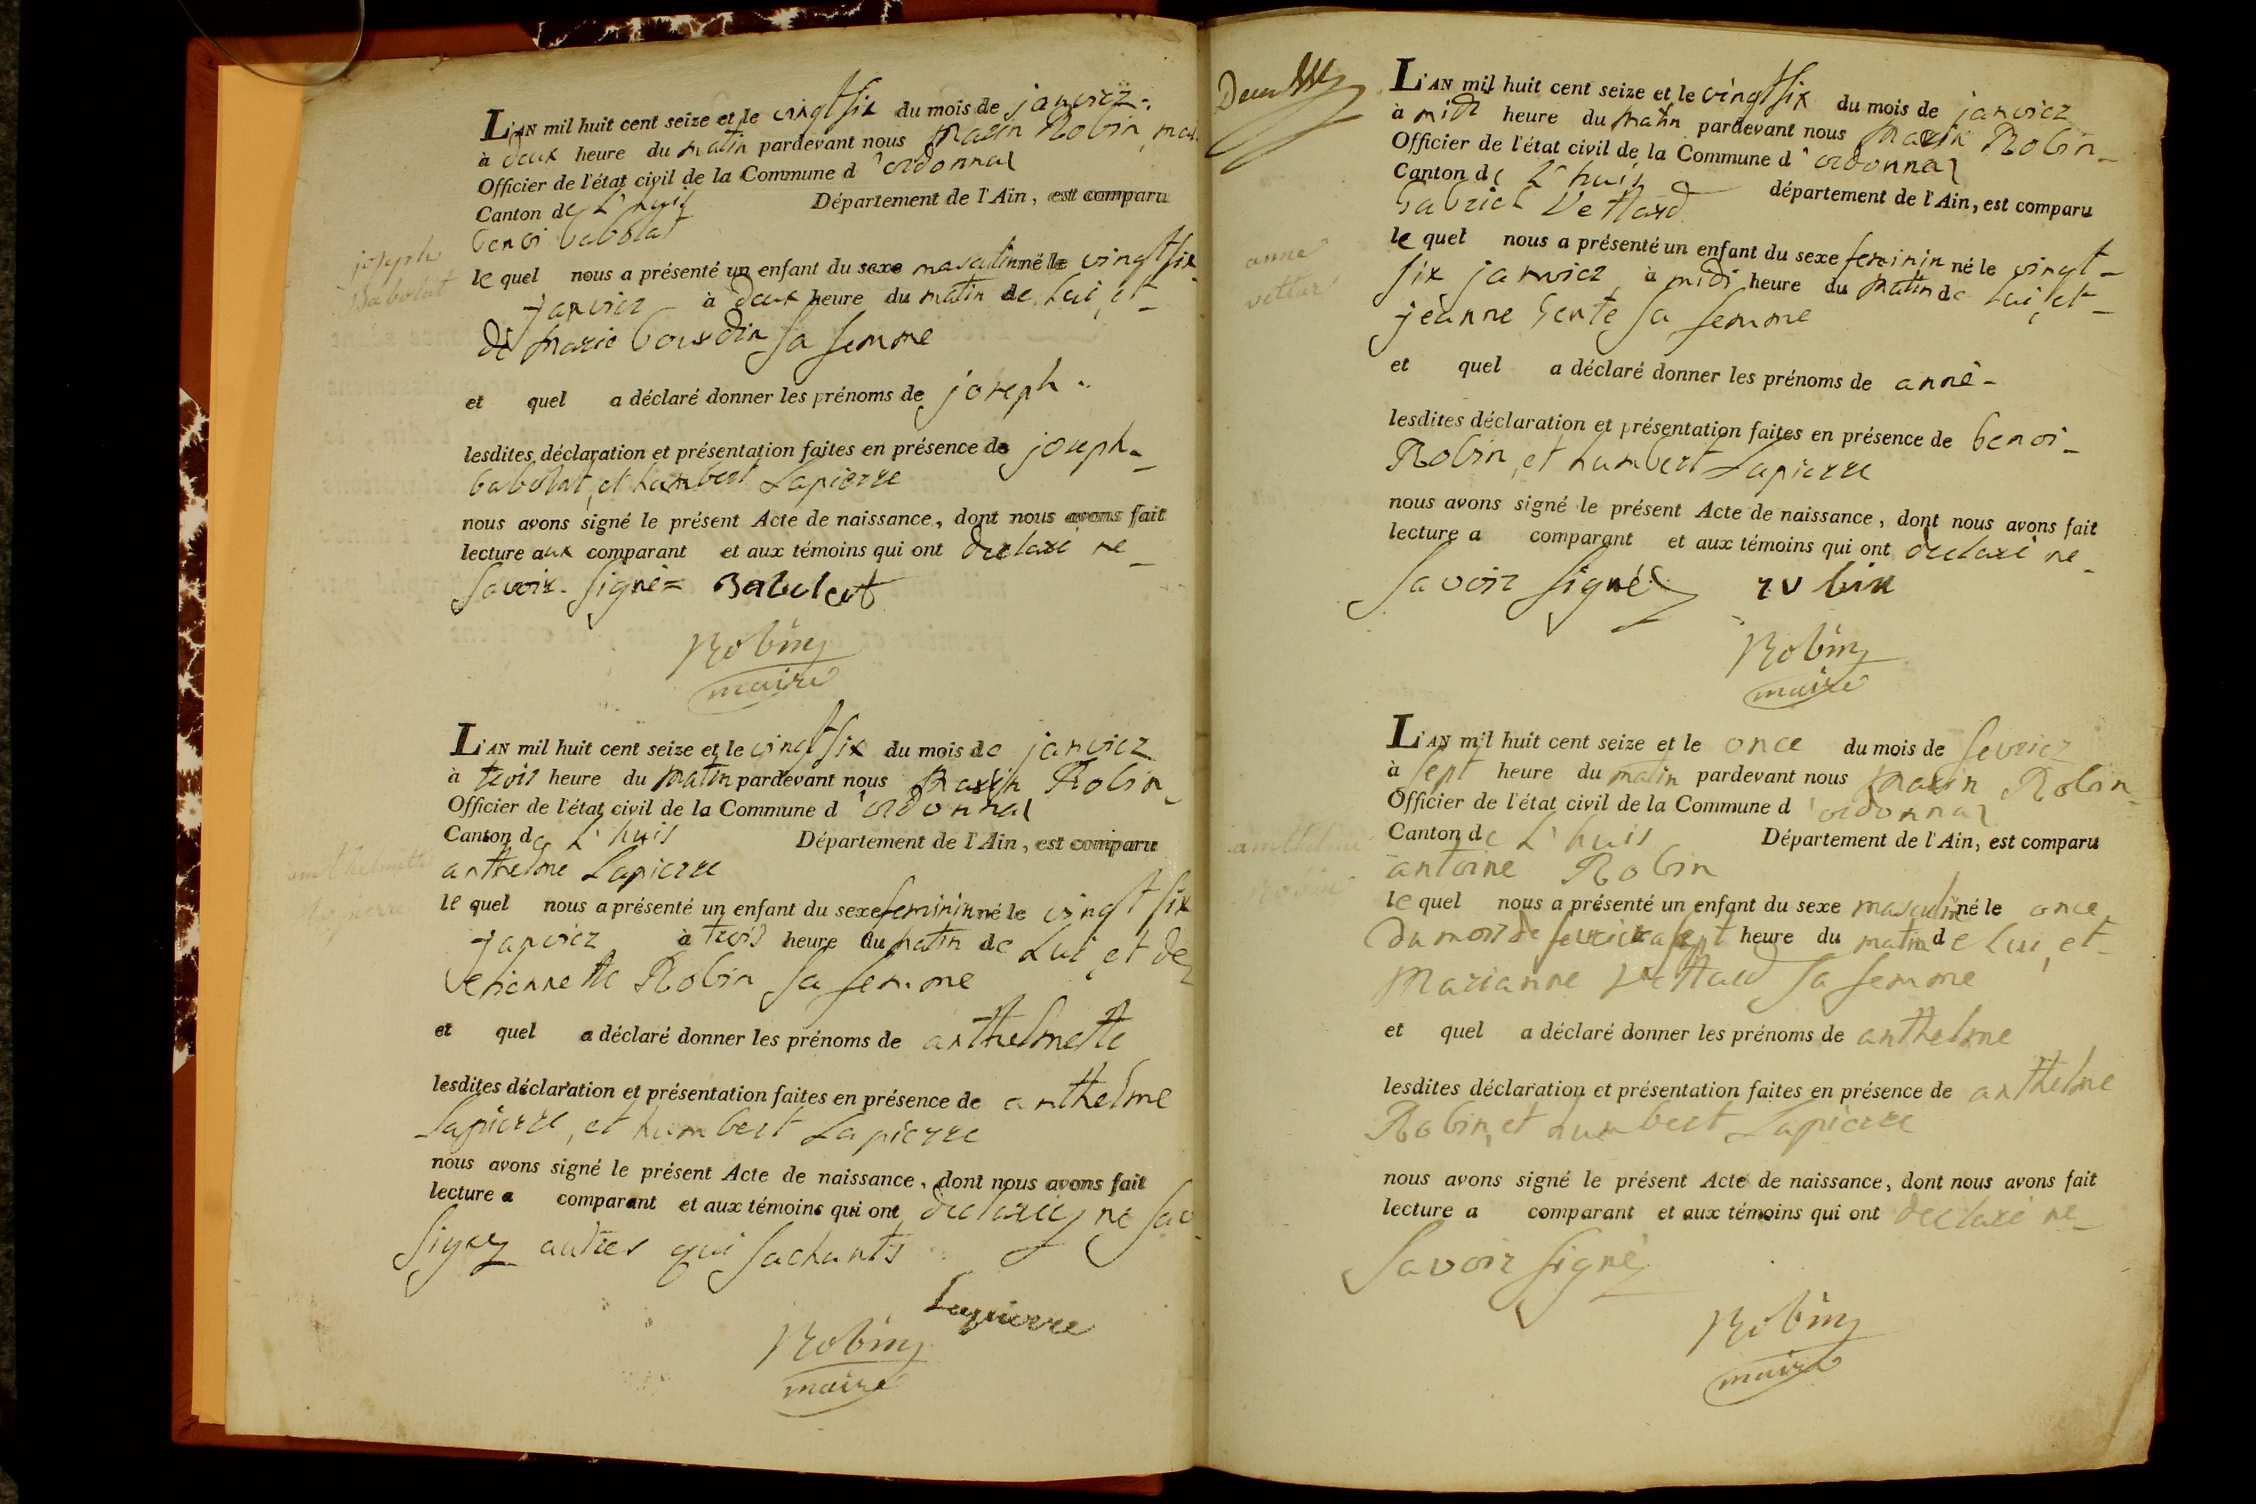 L'AN mil huit cent seize et le vingt six du mois de janvier
à deux heure du matin pardevant nous marin Robin
Officier de l'état civil de la Commune d'ordonnas
Canton de L'huis Département de l'Ain, est comparu
benoi babolat
joseph
Babolat
le quel nous a présenté un enfant du sexe masculin né le vingt six
janvier à deux heure du matin de lui et
de marie bourdin sa femme
et quel a déclaré donner les prénoms de joseph
lesdites déclaration et présentation faites en présence de joseph
babolat, et humbert Lapierre
nous avons signé le présent Acte de naissance, dont nous avons fait
lecture aux comparant et aux témoins qui ont declaré ne
savoir signé Babolat
Robin
maire
L'AN mil huit cent seize et le vingt six du mois de janvier
à trois heure du matin pardevant nous marin Robin
Officier de l'état civil de la Commune d'ordonnas
Canton de L'huis Département de l'Ain, est comparu
anthelme Lapierre
anthelmette
lapierre
le quel nous a présenté un enfant du sexe feminin né le vingt six
janvier à trois heure du matin de lui, et de
etiennette Robin sa femme
et quel a déclaré donner les prénoms de anthelmette
lesdites déclaration et présentation faites en présence de anthelme
Lapierre, et humbert Lapierre
nous avons signé le présent Acte de naissance, dont nous avons fait
lecture a comparant et aux témoins qui ont ne
autres qui sachants
Lapierre
Robin
maire
L'AN mil huit cent seize et le vingt six du mois de janvier
à midi heure du matin pardevant nous marin Robin
Officier de l'état civil de la Commune d'ordonnas
Canton de L'huis département de l'Ain, est comparu
gabriel Vettard
anne
vettard
le quel nous a présenté un enfant du sexe feminin né le vingt
six janvier à midi heure du matin de lui, et
jeanne gente sa femme
et quel a déclaré donner les prénoms de anne
lesdites déclaration et présentation faites en présence de benoi
Robin, et humbert Lapierre
nous avons signé le présent Acte de naissance, dont nous avons fait
lecture a comparant et aux témoins qui ont declaré ne
savoir signé robin
Robin
maire
L'AN mil huit cent seize et le once du mois de fevrier
à sept heure du matin pardevant nous marin Robin
Officier de l'état civil de la Commune d'ordonnas
Canton de L'huis Département de l'Ain, est comparu
antoine Robin
anthelme
robin
le quel nous a présenté un enfant du sexe masculin né le once
du mois de fevrier a sept heure du matin de lui, et
marianne Vettard sa femme
et quel a déclaré donner les prénoms de anthelme
lesdites déclaration et présentation faites en présence de anthelme
Robin, et humbert Lapierre
nous avons signé le présent Acte de naissance, dont nous avons fait
lecture a comparant et aux témoins qui ont declaré ne
savoir signé
Robin
maire